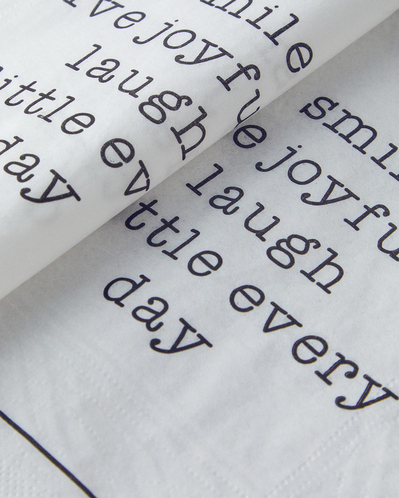 mile
ve joyfu
laugh
ittle ev
day
smil
e joyfu
laugh
ttle every
day